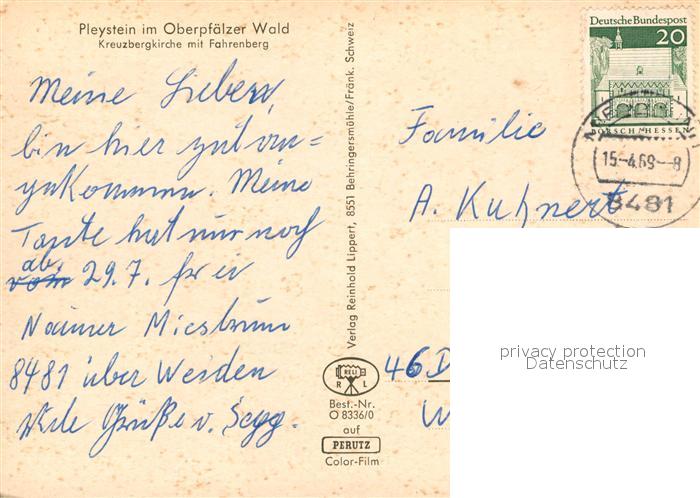 Pleystein im Oberpfälzer Wald
Kreuzbergkirche mit Fahrenberg
Meine Lieben,
bin hier gut an=
gekommen. Meine
Tante hat nur noch
ab
vom 29.7. frei
8481 über Weiden
Viele Grüße v. Segg.
Verlag Reinhold Lippert, 8551 Behringersmühle/Fränk. Schweiz
RELI
R L
Best.-Nr.
O 8336/0
auf
PERUTZ
Color-Film
Deutsche Bundespost
20
LORSCH/HESSEN
15-4.69-8
8481
Familie
A. Kuhnert
46 D
W
privacy protection
Datenschutz